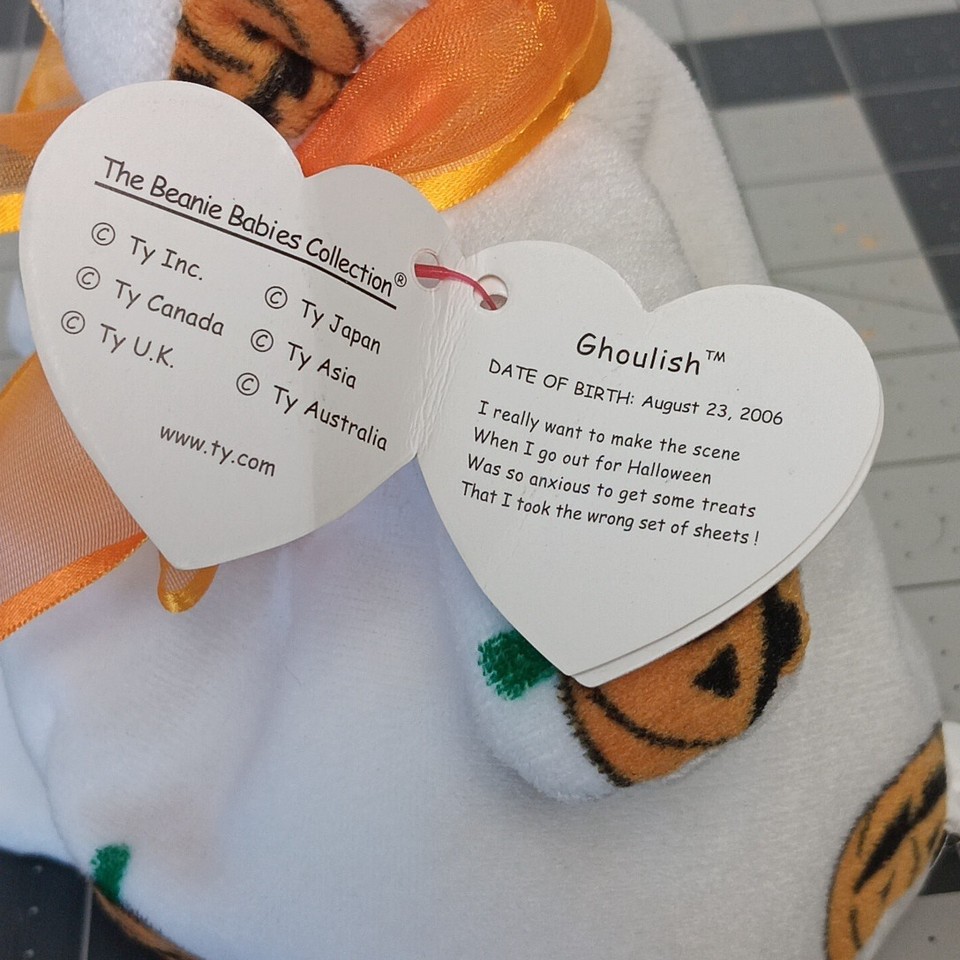 The Beanie Babies Collection®
© Ty Inc.
© Ty Canada
© Ty U.K.
© Ty Japan
© Ty Asia
© Ty Australia
www.ty.com
Ghoulish™
DATE OF BIRTH: August 23, 2006
I really want to make the scene
When I go out for Halloween
Was so anxious to get some treats
That I took the wrong set of sheets !